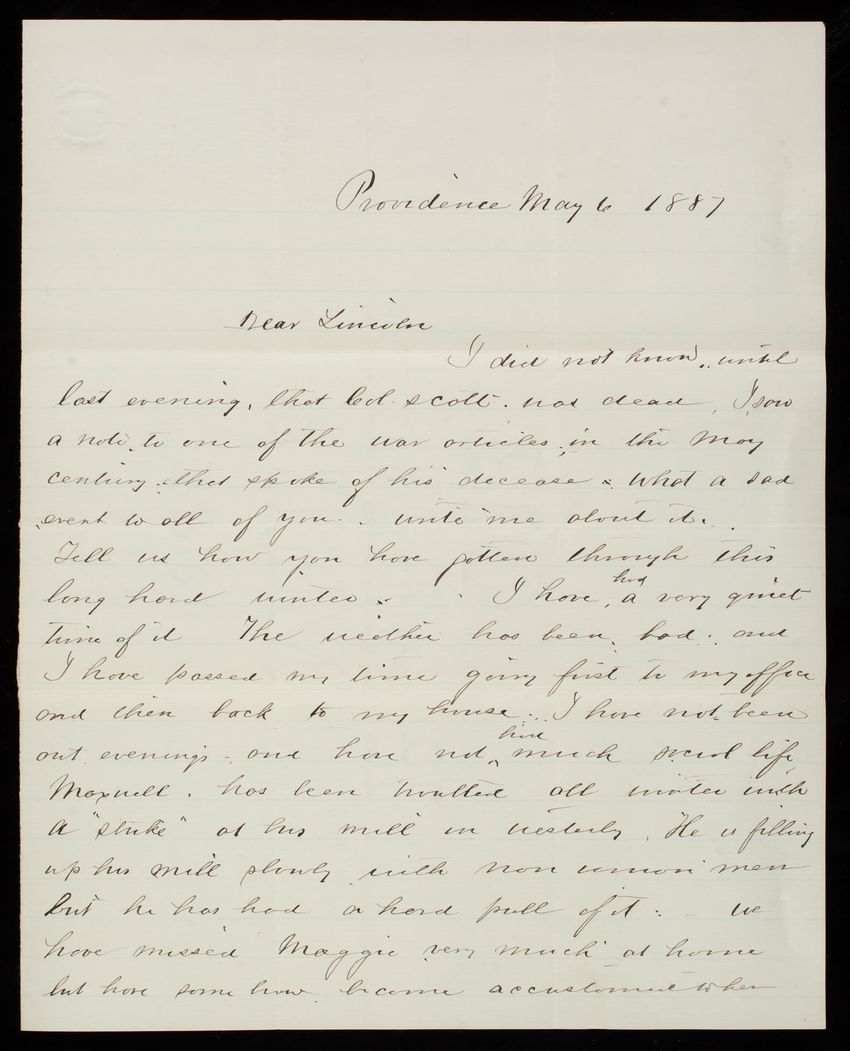 Providence May 6 1887
Dear Lincoln
I did not know, until
last evening, that Col. Scott. was dead, I saw
a note, to one of the war articles, in the May
century. that spoke of his decease. what a sad
event to all of you. write me about it.
Tell us how you have gotten through this
long hard winter. I have, had a very quiet
time of it The weather has been, bad. and
I have passed my time going first to my office
and then back to my house. I have not been
out evenings. and have not, had much social life
Maxwell. has been troubled all winter with
a "strike" at his mill in westerly. He is filling
up his mill slowly with non union men
but he has had a hard pull of it. - we
have missed Maggie very much at home
but have some how become accustomed to her